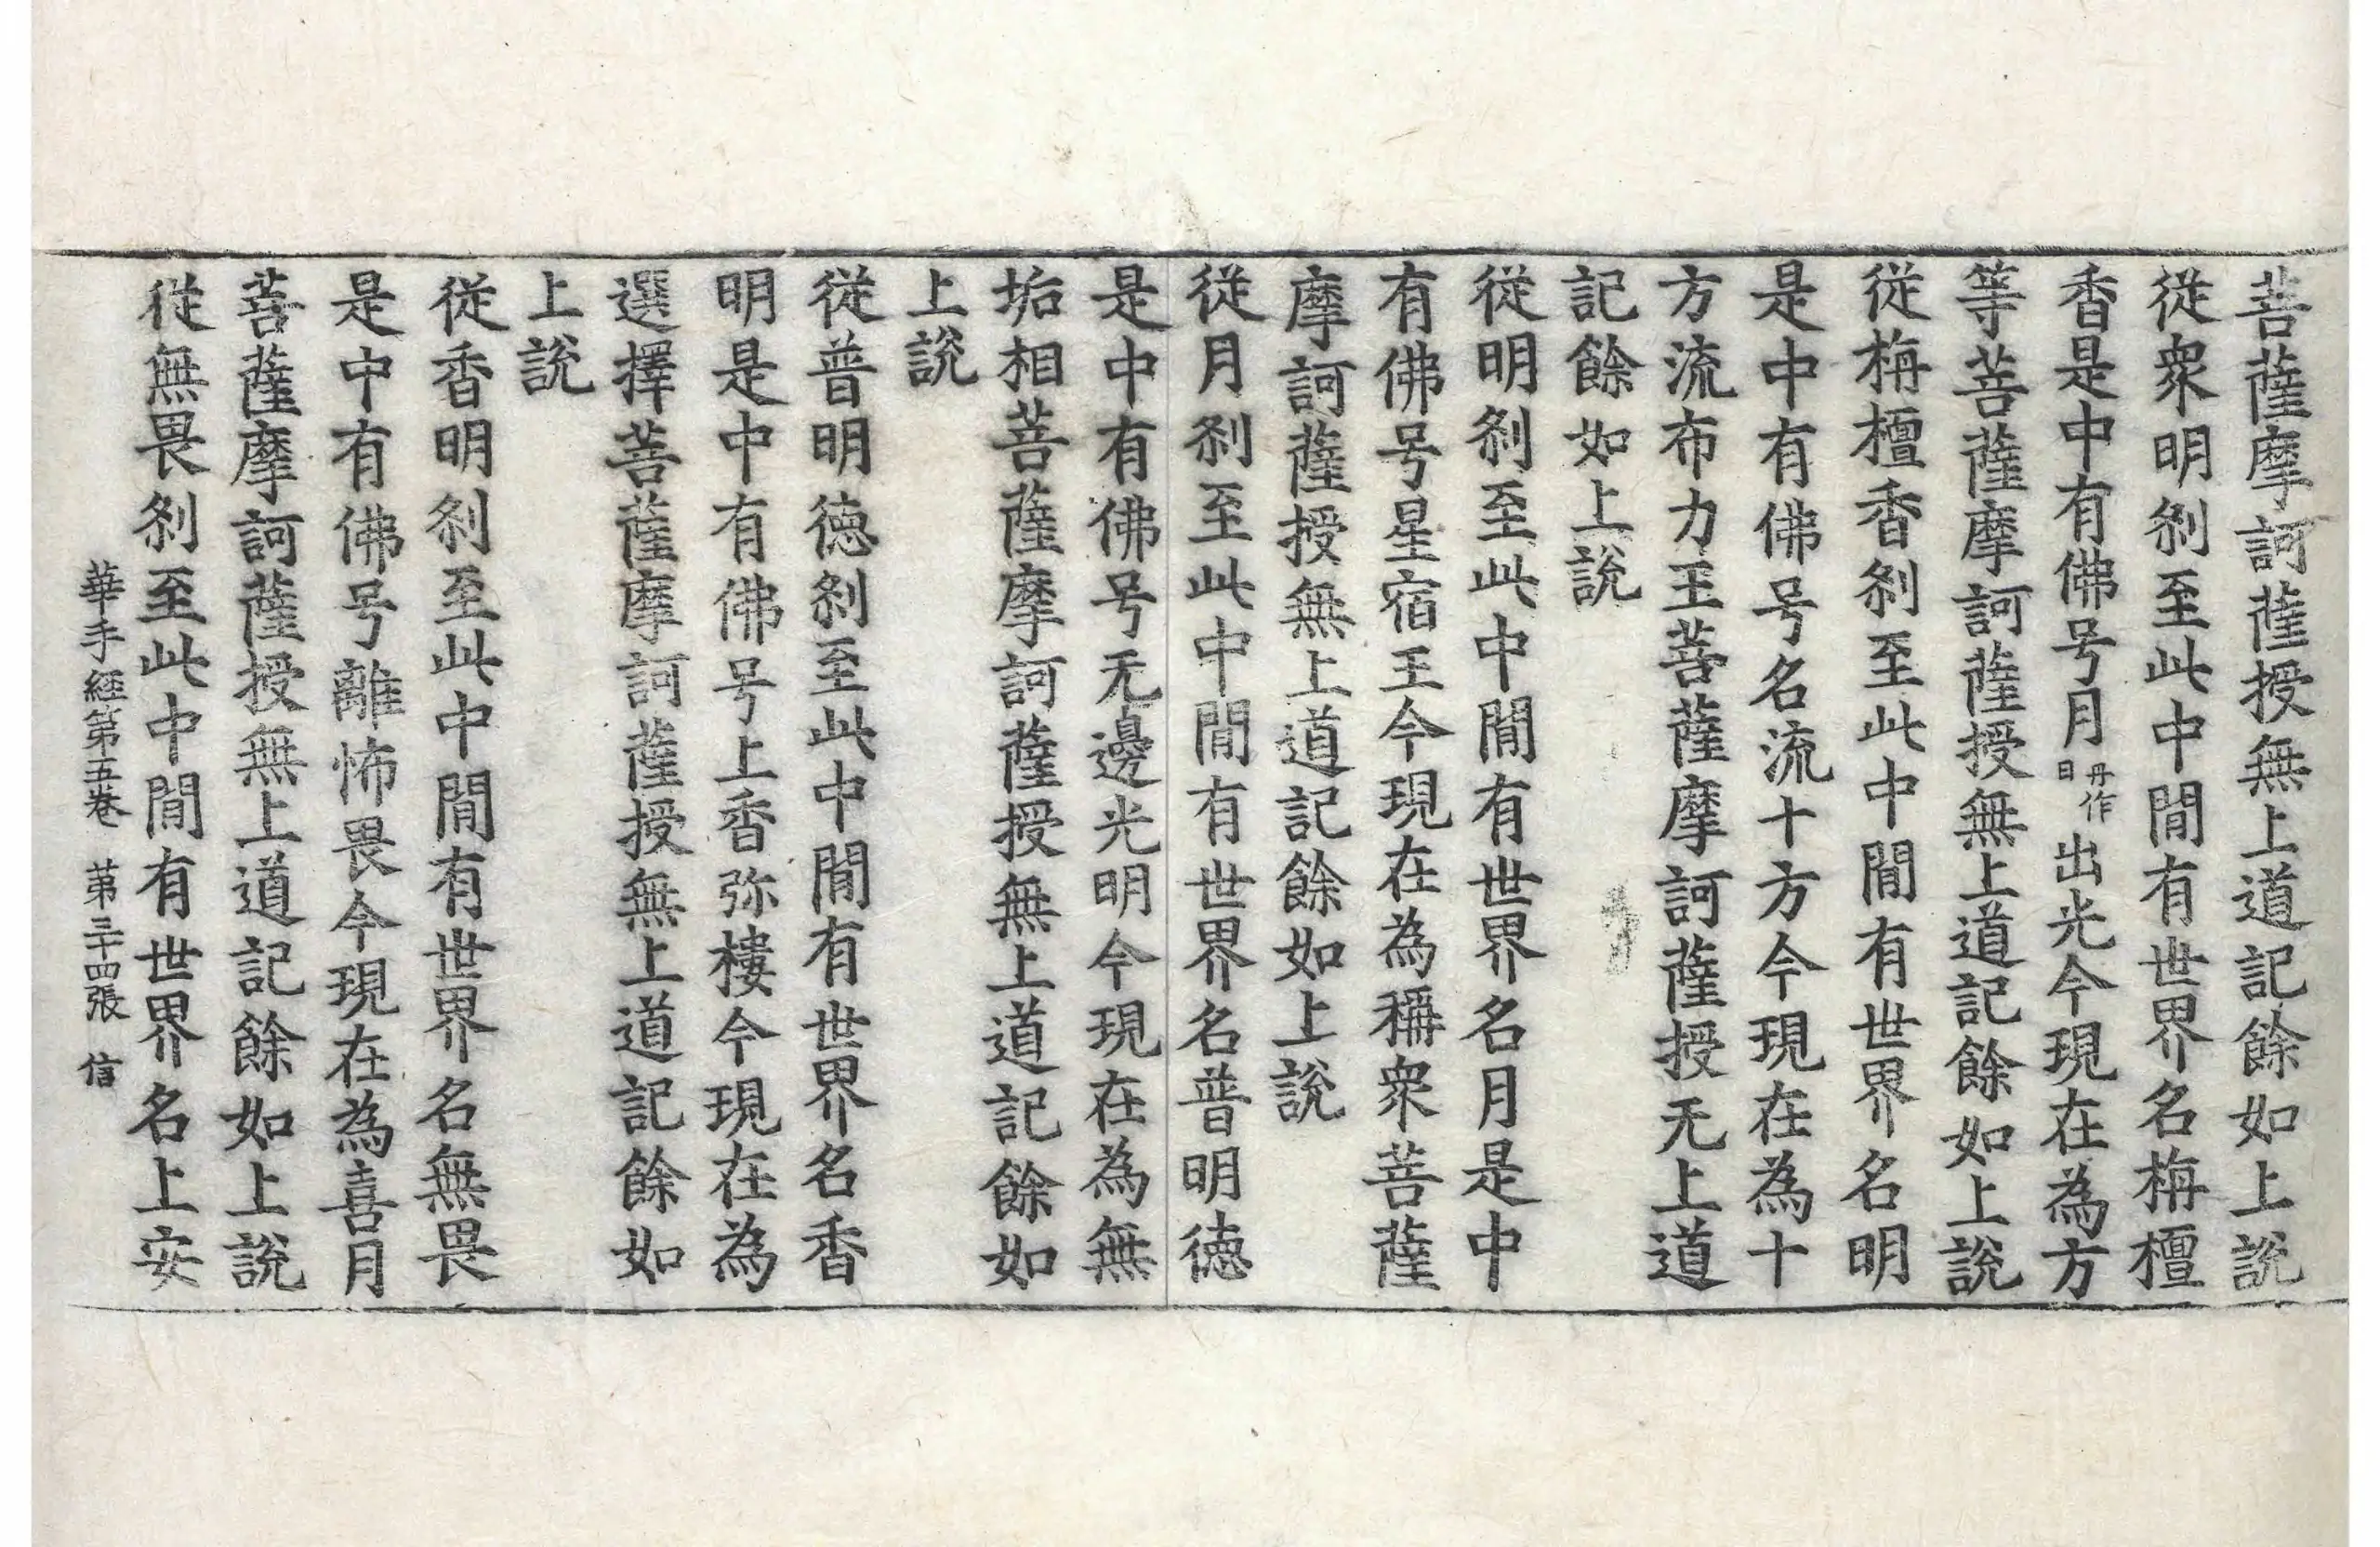 菩薩摩訶薩授無上道記餘如上說
從衆明刹至此中閒有世界名栴檀
香是中有佛号月丹作日出光今現在為方
等菩薩摩訶薩授無上道記餘如上說
從栴檀香刹至此中閒有世界名明
是中有佛号名流十方今現在為十
方流布力王菩薩摩訶薩授无上道
記餘如上說
從明刹至此中閒有世界名月是中
有佛号星宿王今現在為稱衆菩薩
摩訶薩授無上道記餘如上說
從月刹至此中閒有世界名普明德
是中有佛号无邊光明今現在為無
垢相菩薩摩訶薩授無上道記餘如
上說
從普明德刹至此中閒有世界名香
明是中有佛号上香弥樓今現在為
選擇菩薩摩訶薩授無上道記餘如
上說
從香明刹至此中閒有世界名無畏
是中有佛号離怖畏今現在為喜月
菩薩摩訶薩授無上道記餘如上說
從無畏刹至此中閒有世界名上安
華手經第五卷 第三十四張 信